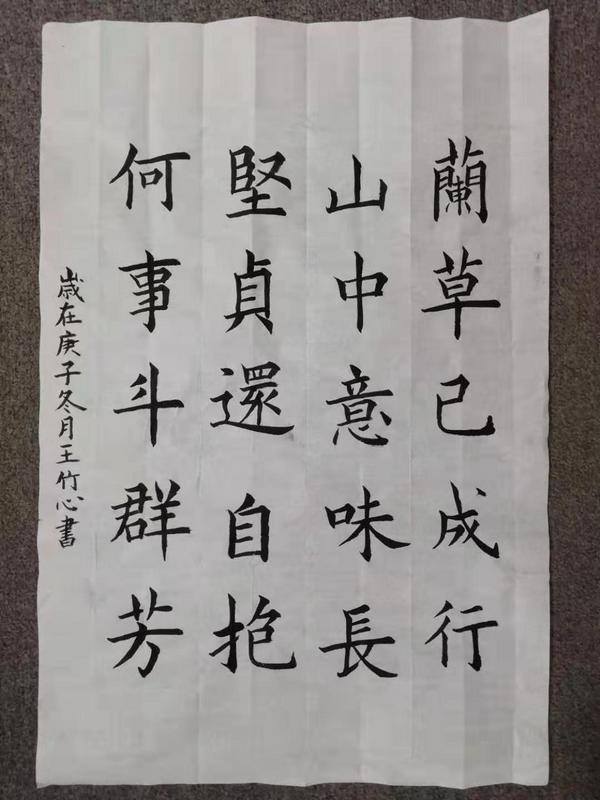 蘭草已成行
山中意味長
堅貞還自抱
何事斗群芳
歲在庚子冬月王竹心書